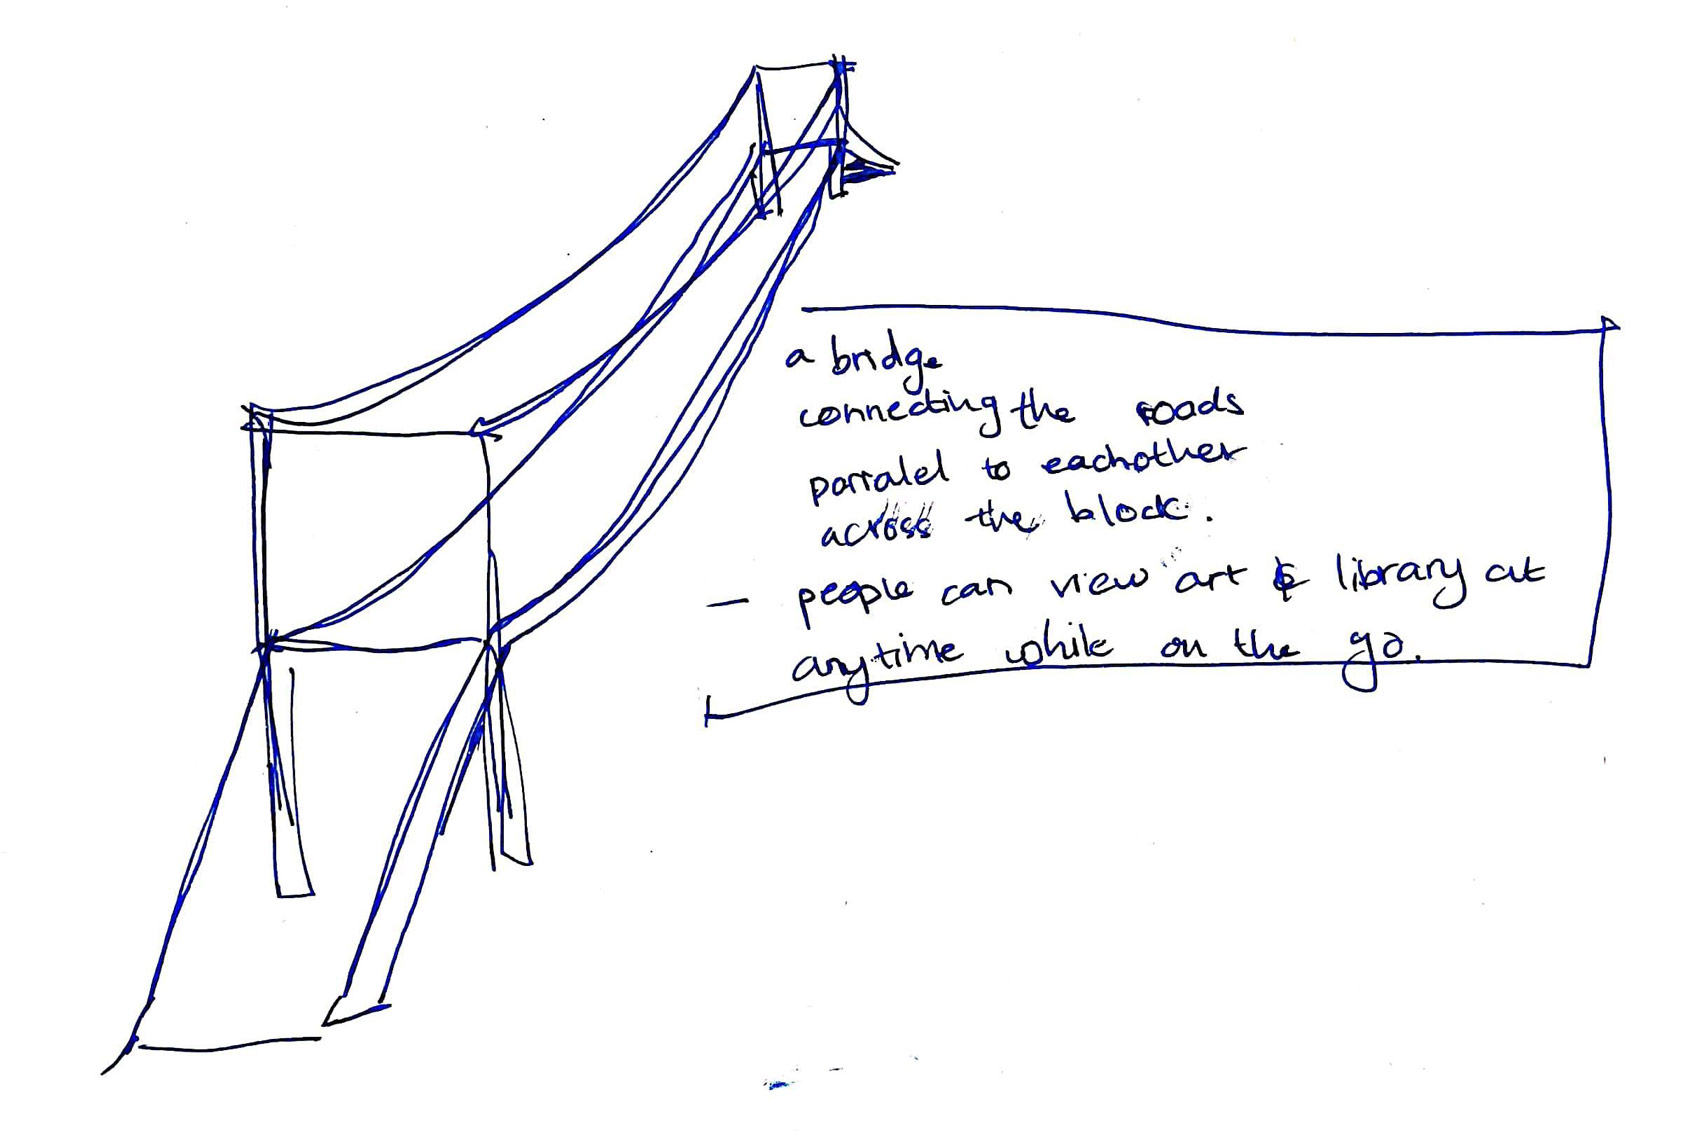 a bridge
connecting the roads
parralel to eachother
across the block.
— people can view art & library at
anytime while on the go.